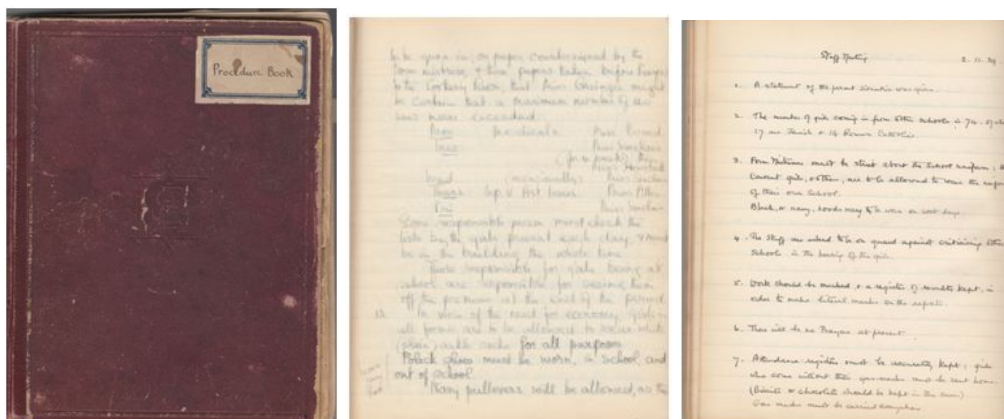 Procedure Book
to be given in, on paper countersigned by the
form mistress, & these papers taken before Prayers
to the Cookery Room, that Miss might
be certain that a maximum number of
was never exceeded.
Mon Medicals Miss
Tues Miss Sinclair
(for 4 weeks) then
Wed (occasionally) Miss Sinclair
Thurs Sep. V Art Miss
Fri Miss Sinclair
Some responsible person must check the
lists by the girls present each day & must
be in the building the whole time.
Those responsible for girls being at
school are responsible for seeing them
off the premises at the end of the period.
In view of the need for economy girls in
all forms are to be allowed to wear white
(plain) ankle socks for all purposes
Black shoes must be worn, in School and
out of School.
Navy pullovers will be allowed, as the
Staff Meeting 2. 11. 39
1. A statement of the present situation was given.
2. The number of girls coming in from other schools is 74. of
17 are Jewish & 14 Roman Catholics.
3. Form Mistresses must be strict about the School uniform;
Convent girls, & others, are to be allowed to wear the uniform
of their own School.
Black, or navy, hoods may be worn on wet days.
4. The Staff are asked to be on guard against criticising other
Schools in the hearing of the girls.
5. Work should be marked & a register of results kept, in
order to make literal marks on the reports.
6. There will be no Prayers at present.
7. Attendance registers must be accurately kept; girls
who come without their gas-masks must be sent home.
(Biscuits or chocolate should be kept in the )
Gas masks must be carried everywhere.